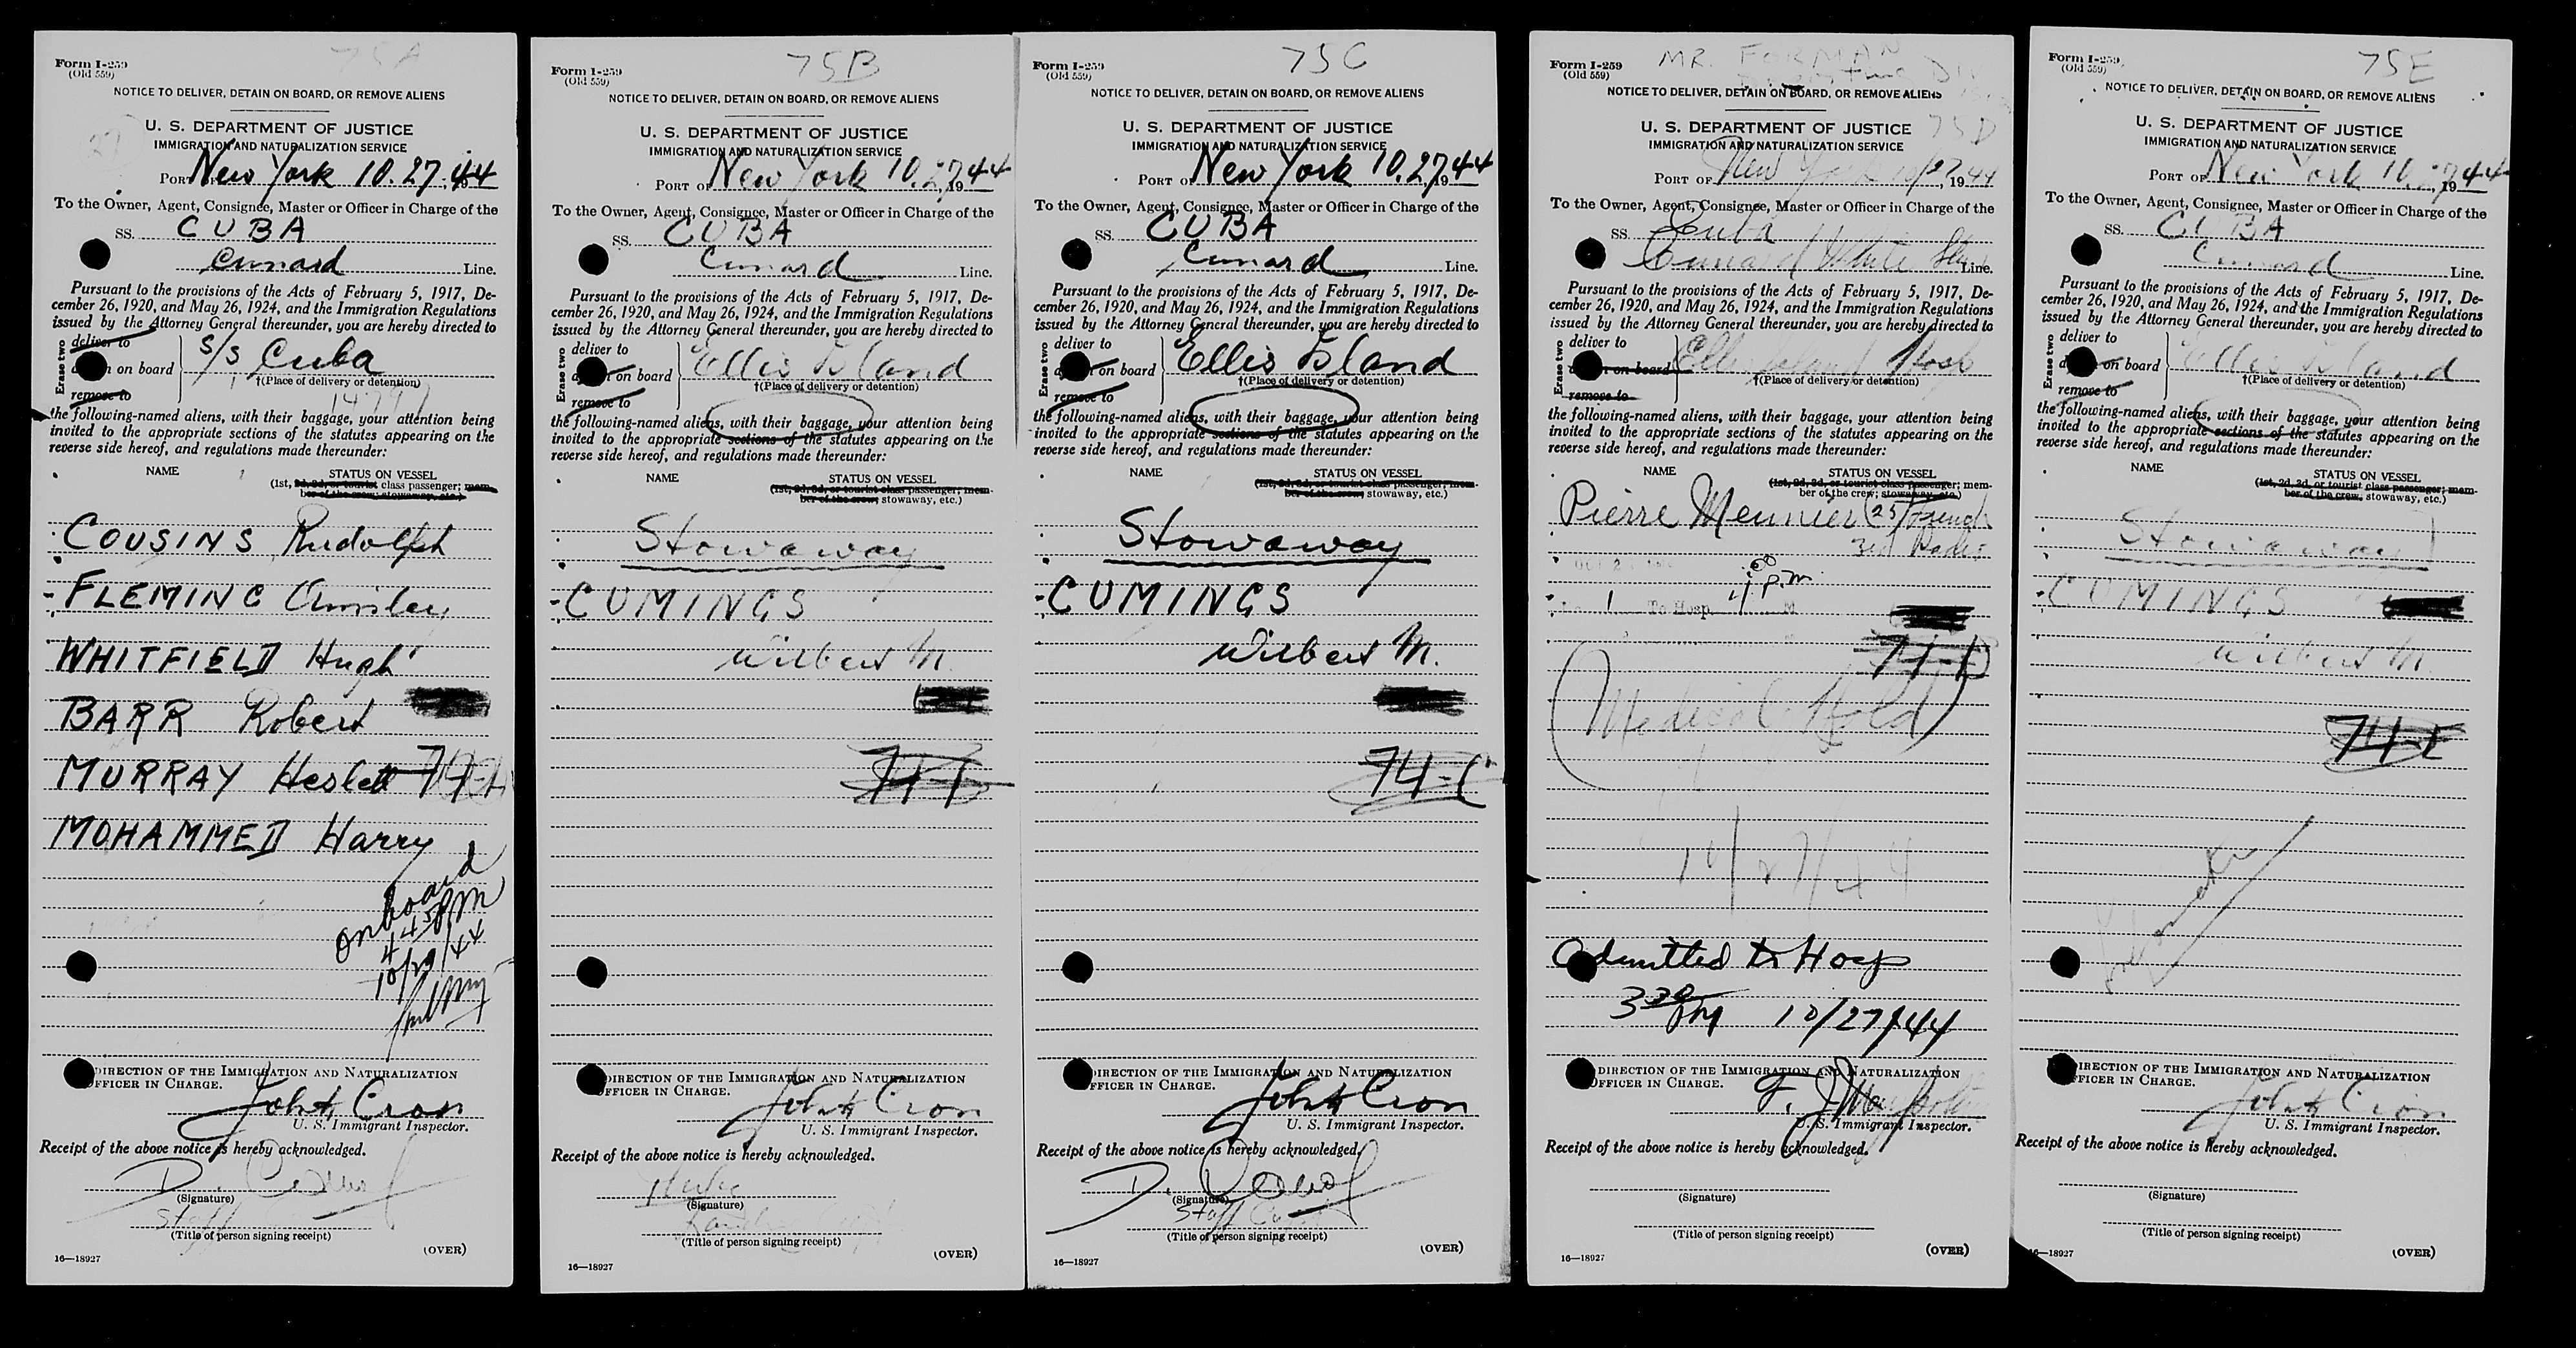 75A
Form I-259
(Old 559)
NOTICE TO DELIVER, DETAIN ON BOARD, OR REMOVE ALIENS
U. S. DEPARTMENT OF JUSTICE
IMMIGRATION AND NATURALIZATION SERVICE
PORT New York 10.27.44
To the Owner, Agent, Consignee, Master or Officer in Charge of the
SS. CUBA
Cunard Line.
Pursuant to the provisions of the Acts of February 5, 1917, De-
cember 26, 1920, and May 26, 1924, and the Immigration Regulations
issued by the Attorney General thereunder, you are hereby directed to
Erase two
deliver to
on board
remove to
S/S Cuba
†(Place of delivery or detention)
the following-named aliens, with their baggage, your attention being
invited to the appropriate sections of the statutes appearing on the
reverse side hereof, and regulations made thereunder:
NAME STATUS ON VESSEL
(1st, 2d, 3d, or tourist class passenger; mem-
ber of the crew; stowaway, etc.)
COUSINS Rudolph
FLEMING
WHITFIELD Hugh
BARR Robert
MURRAY Heslett
MOHAMMED Harry
on board
4 45 PM
10/29/44
DIRECTION OF THE IMMIGRATION AND NATURALIZATION
OFFICER IN CHARGE.
John Cron
U. S. Immigrant Inspector.
Receipt of the above notice is hereby acknowledged.
D.
(Signature)
Staff
(Title of person signing receipt)
16—18927 (OVER)
75B
Form I-259
(Old 559)
NOTICE TO DELIVER, DETAIN ON BOARD, OR REMOVE ALIENS
U. S. DEPARTMENT OF JUSTICE
IMMIGRATION AND NATURALIZATION SERVICE
PORT OF New York 10.27 1944
To the Owner, Agent, Consignee, Master or Officer in Charge of the
SS. CUBA
Cunard Line.
Pursuant to the provisions of the Acts of February 5, 1917, De-
cember 26, 1920, and May 26, 1924, and the Immigration Regulations
issued by the Attorney General thereunder, you are hereby directed to
Erase two
deliver to
on board
remove to
Ellis Island
†(Place of delivery or detention)
the following-named aliens, with their baggage, your attention being
invited to the appropriate sections of the statutes appearing on the
reverse side hereof, and regulations made thereunder:
NAME STATUS ON VESSEL
(1st, 2d, 3d, or tourist class passenger; mem-
ber of the crew; stowaway, etc.)
Stowaway
CUMINGS
Wilbert M.
DIRECTION OF THE IMMIGRATION AND NATURALIZATION
OFFICER IN CHARGE.
John Cron
U. S. Immigrant Inspector.
Receipt of the above notice is hereby acknowledged.
(Signature)
(Title of person signing receipt)
16—18927 (OVER)
75C
Form I-259
(Old 559)
NOTICE TO DELIVER, DETAIN ON BOARD, OR REMOVE ALIENS
U. S. DEPARTMENT OF JUSTICE
IMMIGRATION AND NATURALIZATION SERVICE
PORT OF New York 10.27 1944
To the Owner, Agent, Consignee, Master or Officer in Charge of the
SS. CUBA
Cunard Line.
Pursuant to the provisions of the Acts of February 5, 1917, De-
cember 26, 1920, and May 26, 1924, and the Immigration Regulations
issued by the Attorney General thereunder, you are hereby directed to
Erase two
deliver to
on board
remove to
Ellis Island
†(Place of delivery or detention)
the following-named aliens, with their baggage, your attention being
invited to the appropriate sections of the statutes appearing on the
reverse side hereof, and regulations made thereunder:
NAME STATUS ON VESSEL
(1st, 2d, 3d, or tourist class passenger; mem-
ber of the crew; stowaway, etc.)
Stowaway
CUMINGS
Wilbert M.
74-C
DIRECTION OF THE IMMIGRATION AND NATURALIZATION
OFFICER IN CHARGE.
John Cron
U. S. Immigrant Inspector.
Receipt of the above notice is hereby acknowledged.
D.
(Signature)
Staff
(Title of person signing receipt)
16—18927 (OVER)
MR. FORMAN
Form I-259
(Old 559)
NOTICE TO DELIVER, DETAIN ON BOARD, OR REMOVE ALIENS
U. S. DEPARTMENT OF JUSTICE 75D
IMMIGRATION AND NATURALIZATION SERVICE
PORT OF New York 10/27, 1944
To the Owner, Agent, Consignee, Master or Officer in Charge of the
SS. Cuba
Cunard White Star Line.
Pursuant to the provisions of the Acts of February 5, 1917, De-
cember 26, 1920, and May 26, 1924, and the Immigration Regulations
issued by the Attorney General thereunder, you are hereby directed to
Erase two
deliver to
on board
remove to
Ellis Island Hosp
†(Place of delivery or detention)
the following-named aliens, with their baggage, your attention being
invited to the appropriate sections of the statutes appearing on the
reverse side hereof, and regulations made thereunder:
NAME STATUS ON VESSEL
(1st, 2d, 3d, or tourist class passenger; mem-
ber of the crew; stowaway, etc.)
Pierre Meunier (25) French
3rd Radio
1 To Hosp. 4 00 p.m.
(Medical Hold)
10/27/44
Admitted to Hosp
3 30 PM 10/27/44
DIRECTION OF THE IMMIGRATION AND NATURALIZATION
OFFICER IN CHARGE.
U. S. Immigrant Inspector.
Receipt of the above notice is hereby acknowledged.
(Signature)
(Title of person signing receipt)
16—18927 (OVER)
75E
Form I-259
(Old 559)
NOTICE TO DELIVER, DETAIN ON BOARD, OR REMOVE ALIENS
U. S. DEPARTMENT OF JUSTICE
IMMIGRATION AND NATURALIZATION SERVICE
PORT OF New York 10.27 1944
To the Owner, Agent, Consignee, Master or Officer in Charge of the
SS. CUBA
Cunard Line.
Pursuant to the provisions of the Acts of February 5, 1917, De-
cember 26, 1920, and May 26, 1924, and the Immigration Regulations
issued by the Attorney General thereunder, you are hereby directed to
Erase two
deliver to
on board
remove to
Ellis Island
†(Place of delivery or detention)
the following-named aliens, with their baggage, your attention being
invited to the appropriate sections of the statutes appearing on the
reverse side hereof, and regulations made thereunder:
NAME STATUS ON VESSEL
(1st, 2d, 3d, or tourist class passenger; mem-
ber of the crew, stowaway, etc.)
Stowaway
CUMINGS
Wilbert M.
74-E
DIRECTION OF THE IMMIGRATION AND NATURALIZATION
OFFICER IN CHARGE.
John Cron
U. S. Immigrant Inspector.
Receipt of the above notice is hereby acknowledged.
(Signature)
(Title of person signing receipt)
16—18927 (OVER)